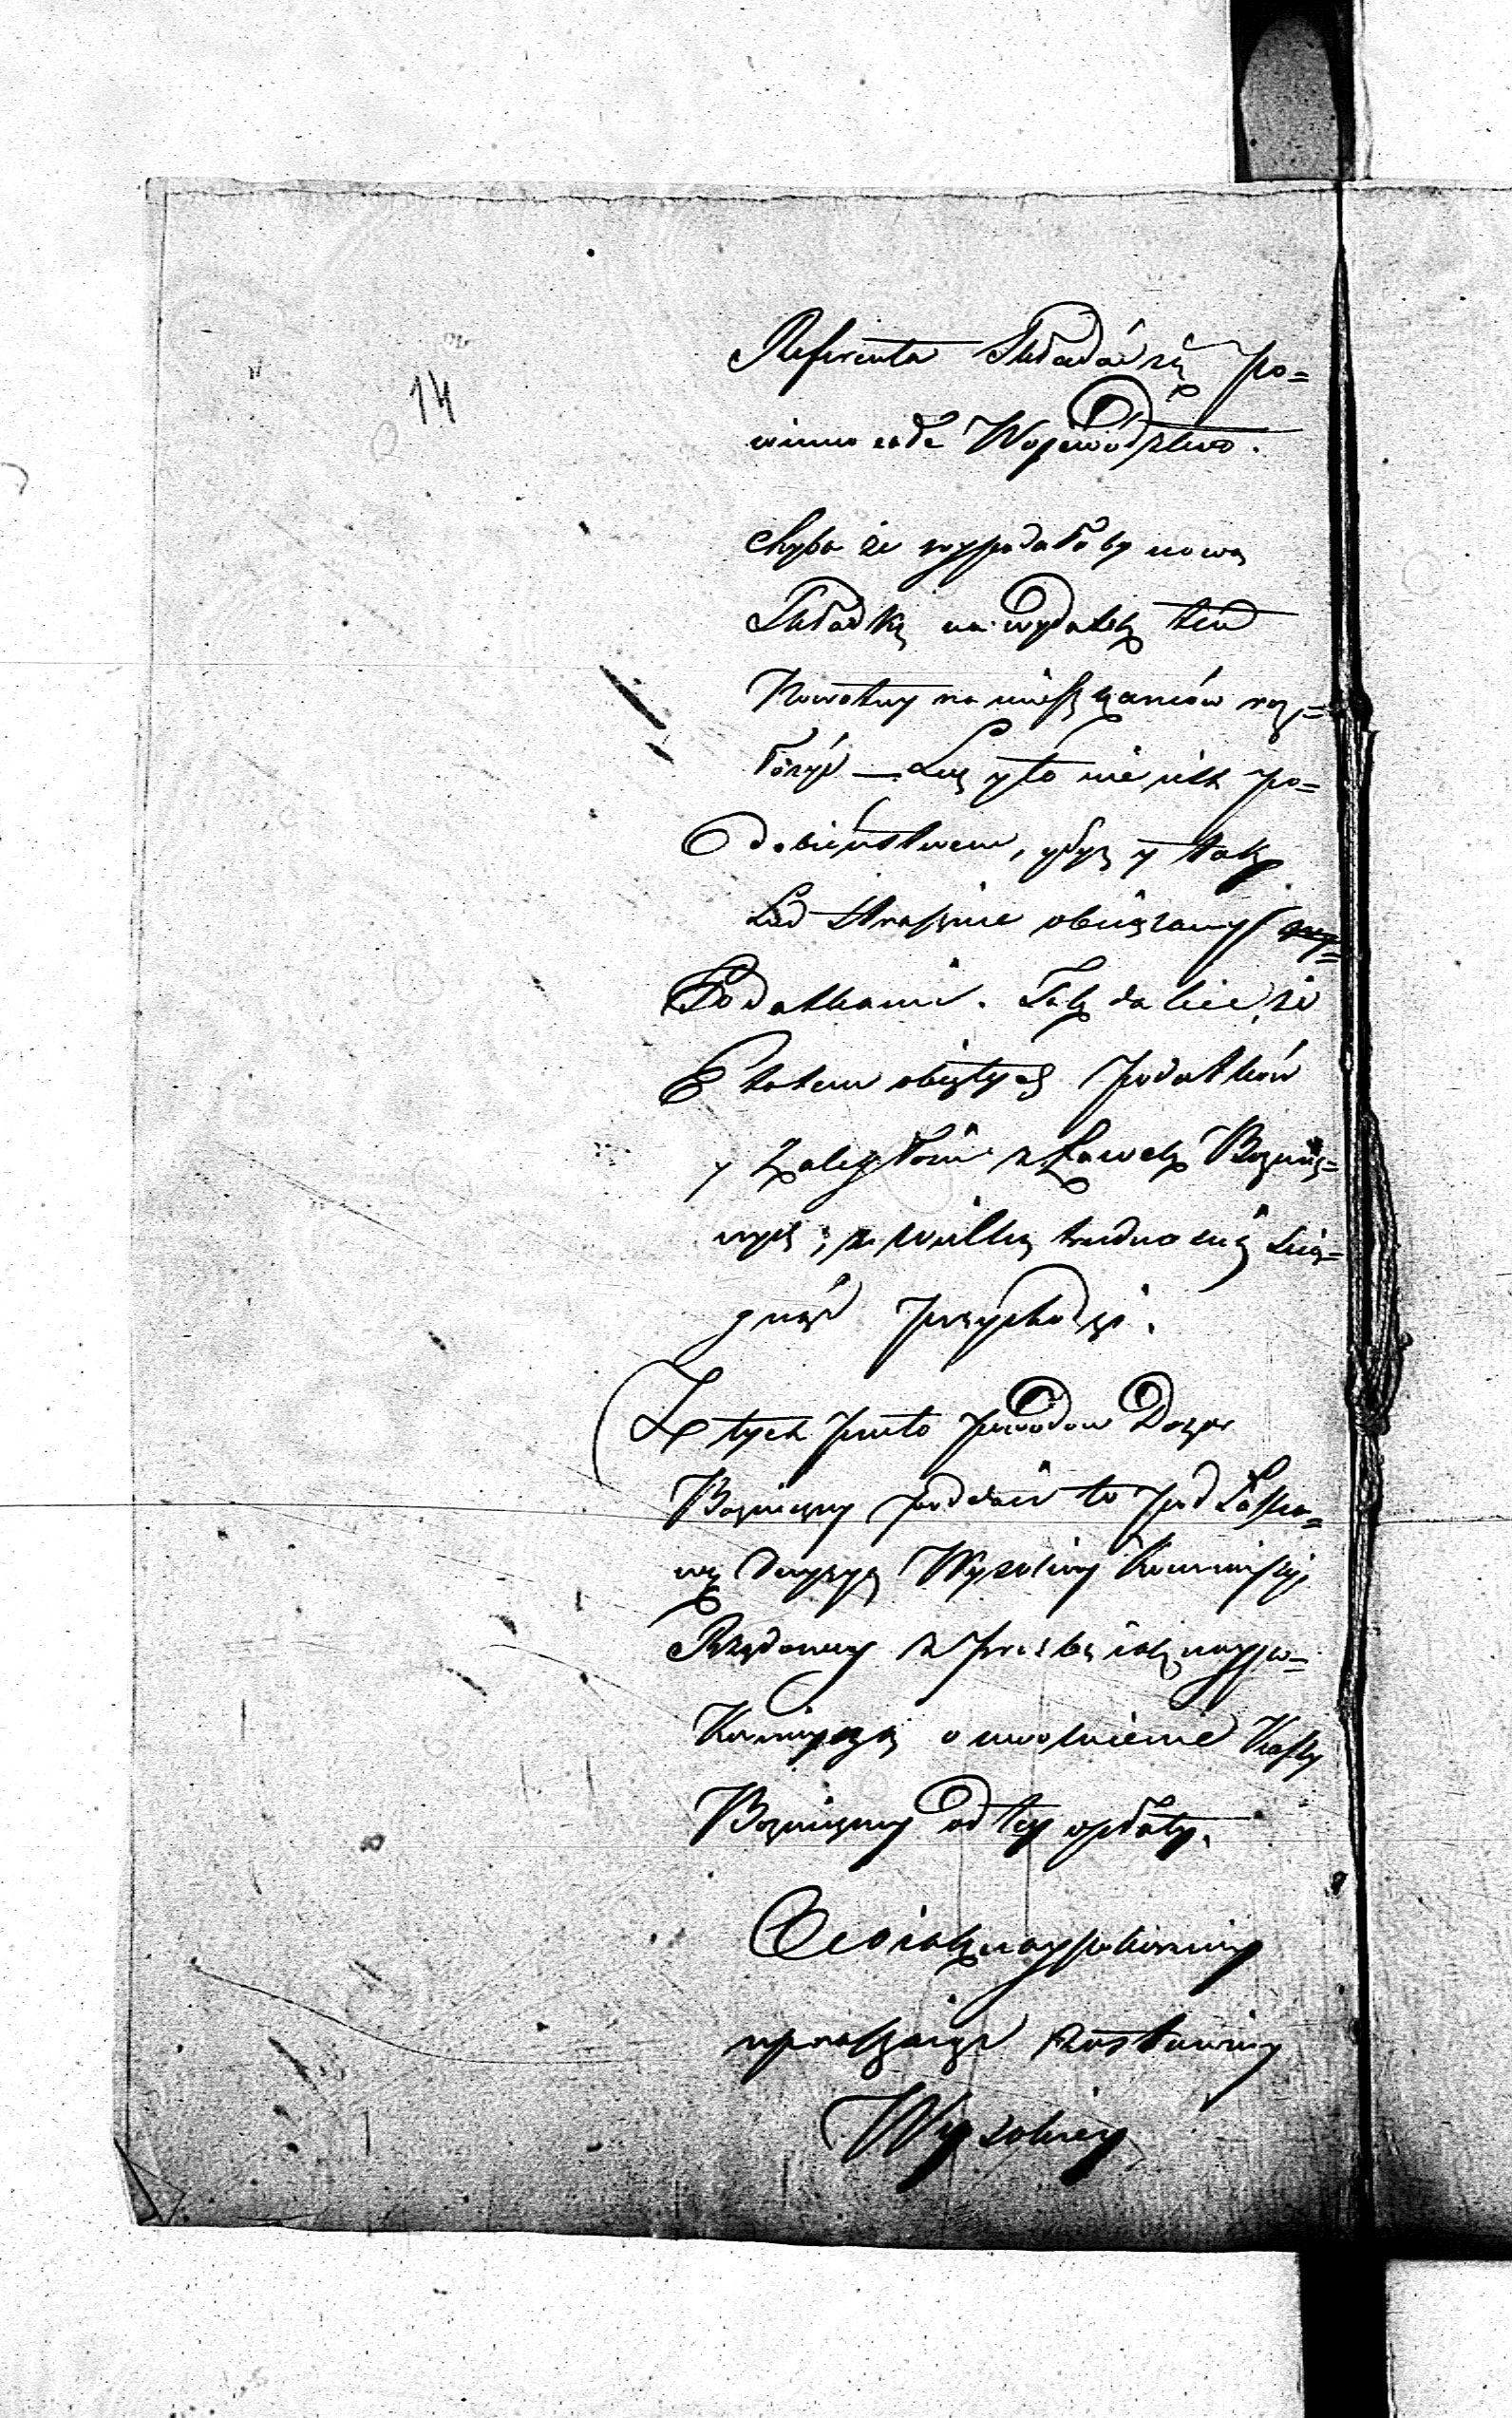 14
Referenta Składać się po=
winno całe Województwo.
Chyba że wypadałoby nową
Składkę na wydatek ten
Kowotny na mieszkańców roz=
łożyć — Lecz y to nie iest po=
dobieństwem, gdyż y tak
Lud strasznie obciążany
Podatkami. Tak dalece, że
Etatem obiętych podatków
y Zaległości z Ławek Bożnicz=
nych; z wielką trudnością ścią=
gnąć przychodzi.
Z tych przeto powodow Dozor
Bożniczny poddaie to pod Łaska=
wą decyzyą Wysokiey Kommissyi
Rządowey z prośbą iak naypo=
Kornieyszą o uwolnienie Kassy
Bożniczney od tey opłaty.
Oco iak naypokorniey
upraszaiąc zostaiemy
Wysokiey